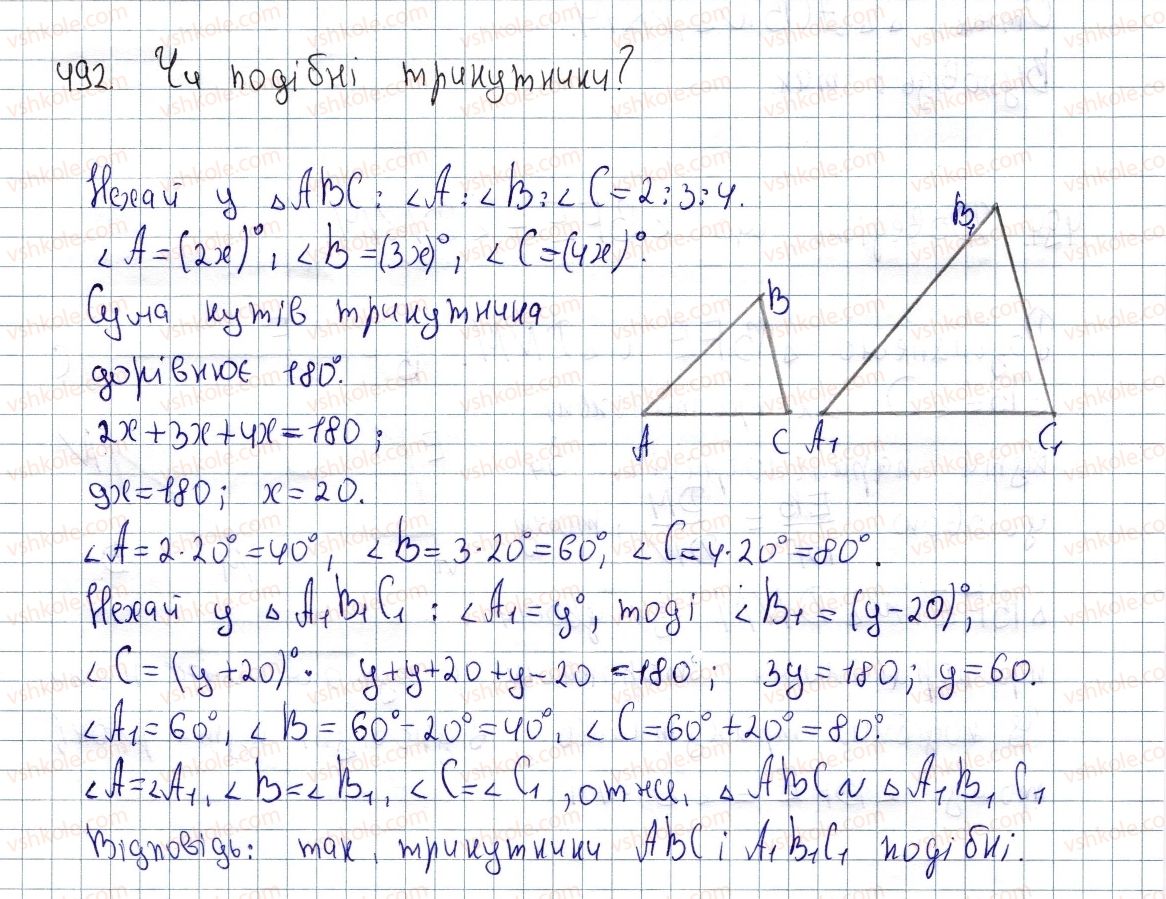 492. Чи подібні трикутники?
Нехай у △ABC: ∠A:∠B:∠C=2:3:4.
∠A=(2x)°, ∠B=(3x)°, ∠C=(4x)°.
Сума кутів трикутника
дорівнює 180°.
2x+3x+4x=180;
9x=180; x=20.
∠A=2·20°=40°, ∠B=3·20°=60°, ∠C=4·20°=80°.
Нехай у △A₁B₁C₁: ∠A₁=y°, тоді ∠B₁=(y-20)°,
∠C=(y+20)°. y+y+20+y-20=180; 3y=180; y=60.
∠A₁=60°, ∠B=60°-20°=40°, ∠C=60°+20°=80°.
∠A=∠A₁, ∠B=∠B₁, ∠C=∠C₁, отже, △ABC ~ △A₁B₁C₁
Відповідь: так, трикутники ABC і A₁B₁C₁ подібні.
B
A
C
B₁
A₁
C₁
vshkole.com